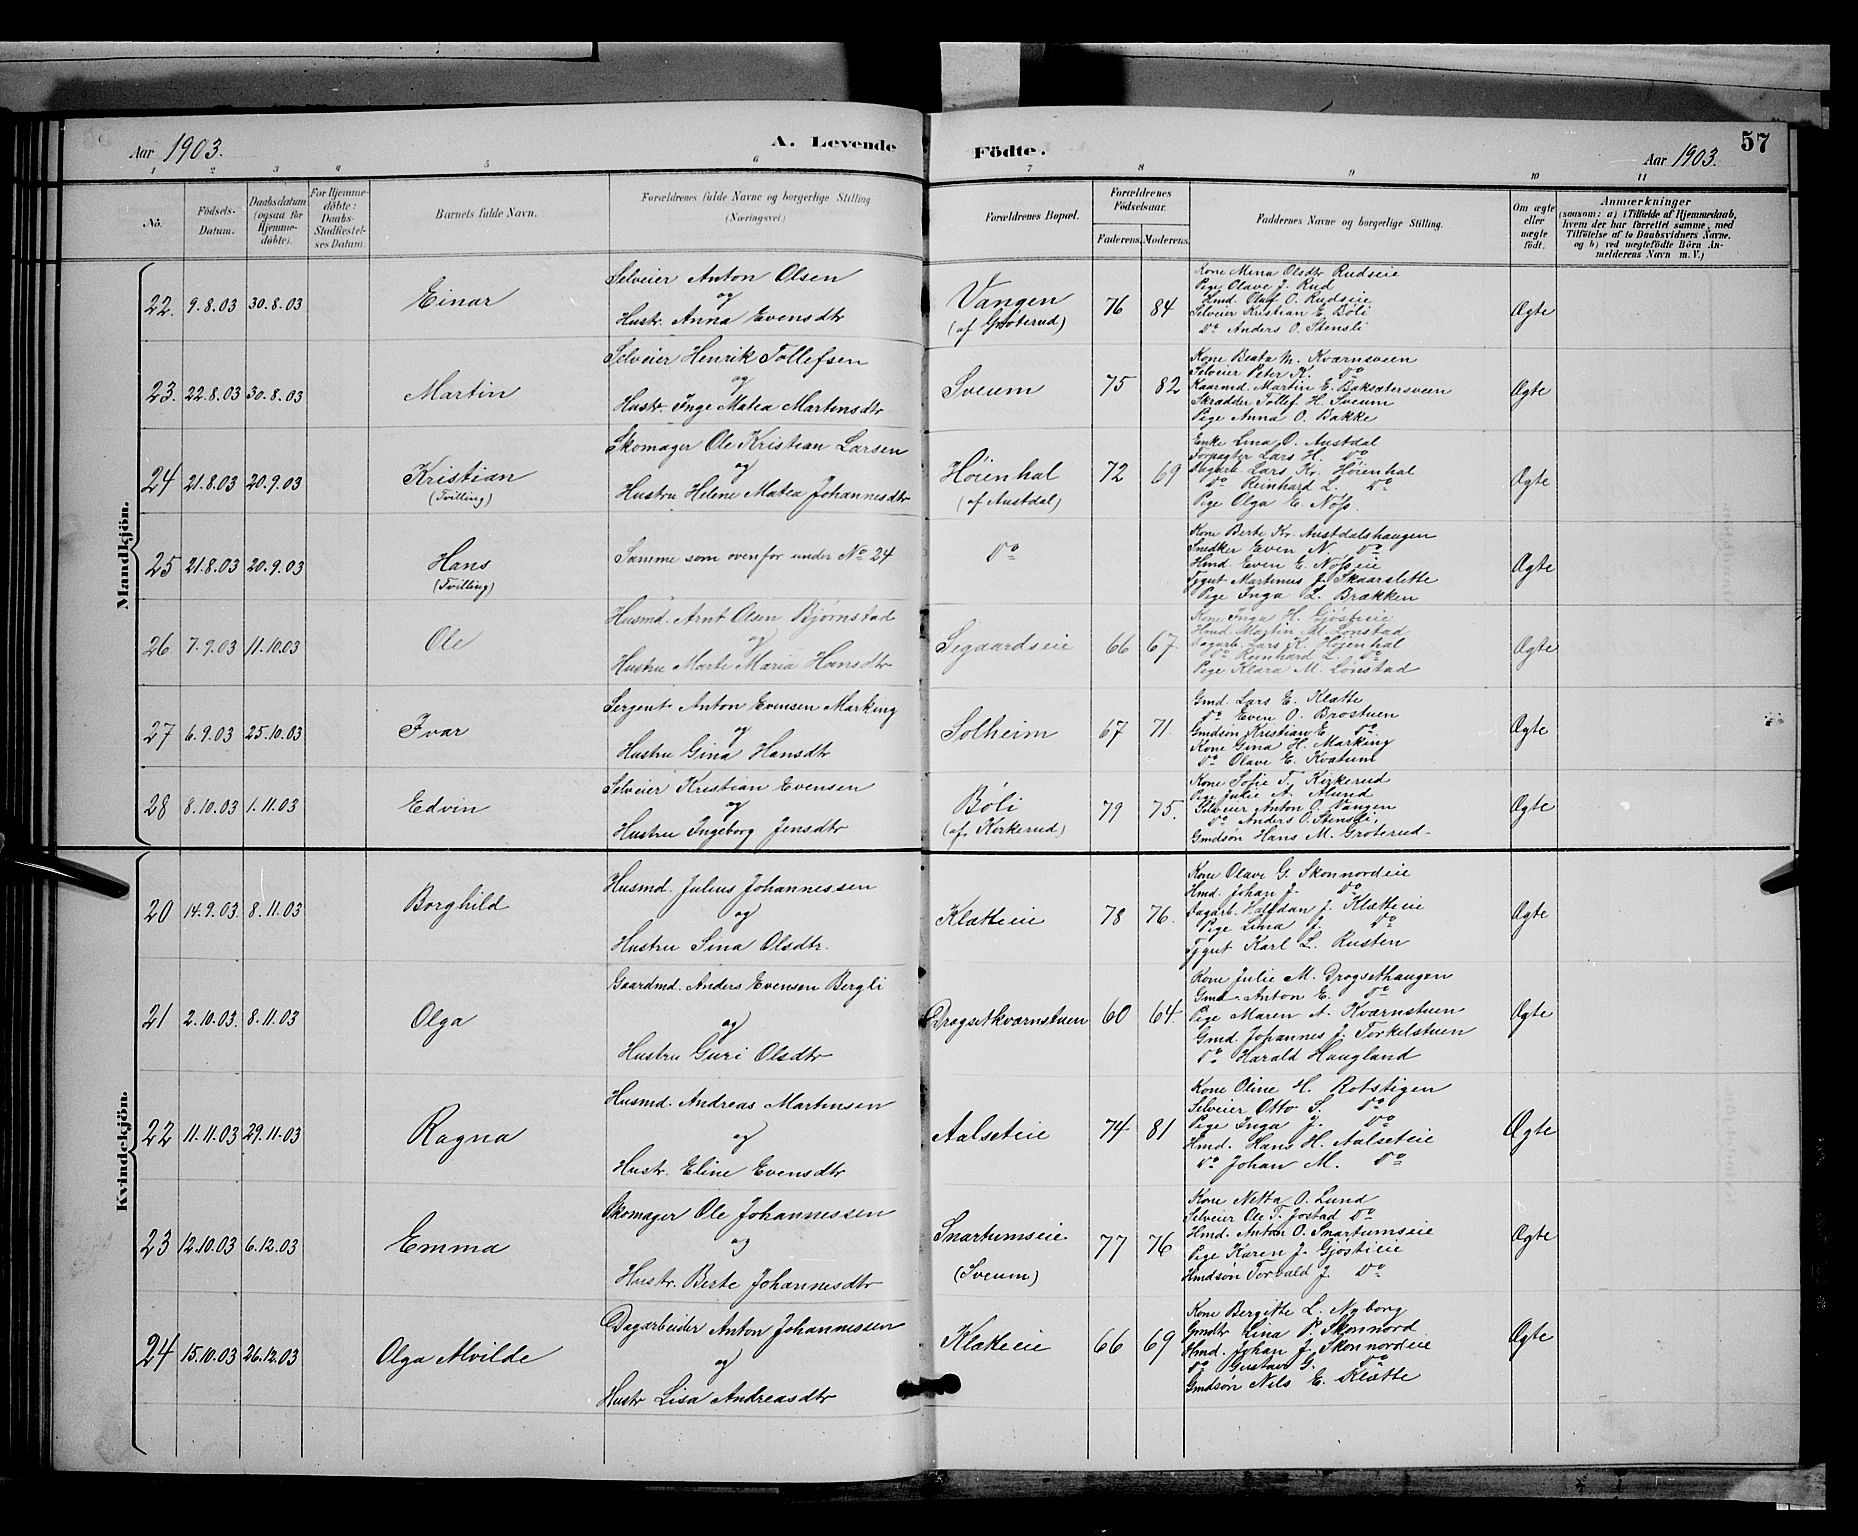 Aar 1903. A. Levende Födte. Aar 1903. 57
1 2 3 4 5 6 7 8 9 10 11
No. Födsels-Datum. Daabsdatum (ogsaa for Hjemme-döbte). For Hjemme-döbte: Daabs-Stadfæstel-ses Datum. Barnets fulde Navn. Forældrenes fulde Navne og borgerlige Stilling (Næringsvei) Forældrenes Bopæl. Forældrenes Födselsaar. Faderens. Moderens. Faddernes Navne og borgerlige Stilling. Om ægte eller uægte födt. Anmærkninger (saasom: a) i Tilfælde af Hjemmedaab, hvem der har forrettet samme, med Tilföielse af to Daabsvidners Navne, og b) ved uægtefödte Börn An-melderens Navn m. V.)
Mandkjön.
22. 9.8.03 30.8.03 Einar
Selveier Anton Olsen
og
Hustr. Anna Evensdtr
Vangen
(af Grøterud)
76 84
Kone Mina Olsdtr Rudseie
Pige Olave J. Rud
Hmd. Olaf O. Rudseie
Selveier Kristian E. Bøli
Do Anders O. Stensli
Ægte
23. 22.8.03 30.8.03 Martin
Selveier Henrik Tollefsen
og
Hustr. Inge Matea Martinsdtr
Sveum
75 82
Kone Beata M. Kværnsveen
Selveier Peter K. Do
Kaarmd. Martin E. Baksætersveen
Skrædder Tollef H. Sveum
Pige Anna O. Bakke
Ægte
24 21.8.03 20.9.03 Kristian
(Tvilling)
Skomager Ole Kristian Larsen
og
Hustru Helene Matea Johannesdtr
Høienhal
(af Austdal)
72 69
Enke Lina O. Austdal
Forpagter Lars H. Do
Dagarb. Lars Kr. Høienhal
Do Reinhard L. Do
Pige Olga E. Nöss.
Ægte
25 21.8.03 20.9.03 Hans
(Tvilling)
Samme som ovenfor under No 24
Do
Kone Berte Kr. Austdalshaugen
Snedker Even N. Do
Hmd. Even E. Nösseie
Tygut Martinus J. Skaarslette
Pige Inga L. Brækken
Ægte
26 7.9.03 11.10.03 Ole
Husmd. Arnt Olsen Bjørnstad
og
Hustru Marte Maria Hansdtr
Sigaardseie
66 67.
Kone Inga H. Gjøstieie
Hmd. Martin M. Lønstad
Dagarb. Lars K. Høienhal
Do Reinhard L. Do
Pige Klara M. Lønstad
Ægte
27 6.9.03 25.10.03 Ivar
Sergent Anton Evensen Marking
og
Hustru Gina Hansdtr
Solheim
67 71.
Gmd. Lars E. Klætte
Do Even O. Brostuen
Gmdsøn Kristian E. Do
Kone Gina H. Marking
Do Olave E. Kvatum
Ægte
28 8.10.03 1.11.03 Edvin
Selveier Kristian Evensen
og
Hustru Ingeborg Jensdtr
Bøli
(af Korkerud)
79 75.
Kone Sofie T. Kirkerud
Pige Julie A. Alund
Selveier Anton O. Vangen
Do Anders O. Stensli,
Gmdsøn Hans M. Grøterud
Ægte
Kvindekjön.
20 14.9.03. 8.11.03 Borghild
Husmd. Julius Johannessen
og
Hustru Sina Olsdtr.
Klætteie
78 76.
Kone Olave G. Skonnordeie
Hmd. Johan J. Do
Dagarb. Halfdan J. Klætteie
Pige Lina J. Do
Tygut Karl L. Rusten
Ægte
21 2.10.03. 8.11.03 Olga
Gaardmd. Anders Evensen Bergli
og
Hustru Guri Olsdtr
Drogsethkværnstuen
60 64.
Kone Julie M. Drogsethaugen
Gmd. Anton E. Do
Pige Maren A. Kværnstuen
Gmd. Johannes J. Torkelstuen
Do Harald Haugland
Ægte
22 11.11.03 29.11.03 Ragna
Husmd. Andreas Martinsen
og
Hustr. Eline Evensdtr
Aalseteie
74 81
Kone Oline H. Rotstigen
Selveier Otto S. Do
Pige Inga J. Do
Hmd. Hans H. Aalseteie
Do Johan M. Do
Ægte
23 12.10.03 6.12.03 Emma
Skomager Ole Johannessen
og
Hustr. Berte Johannesdtr
Snartumseie
(Sveum)
77 76
Kone Netta O. Lund
Selveier Ole T. Jostad Do
Hmd. Anton O. Snartumseie
Pige Karen J. Gjøstieie
Hmdsøn Torvald J. Do
Ægte
24 15.10.03 26.12.03 Olga Alvilde
Dagarbeider Anton Johannessen
og
Hustr Lisa Andreasdtr
Klætteie
66 69
Kone Bergitte L. Nyborg
Gmdtr Lina P. Skonnord
Hmd. Johan J. Skonnordeie
Do Gustav G. Do
Gmdsøn Nils E. Klætte
Ægte